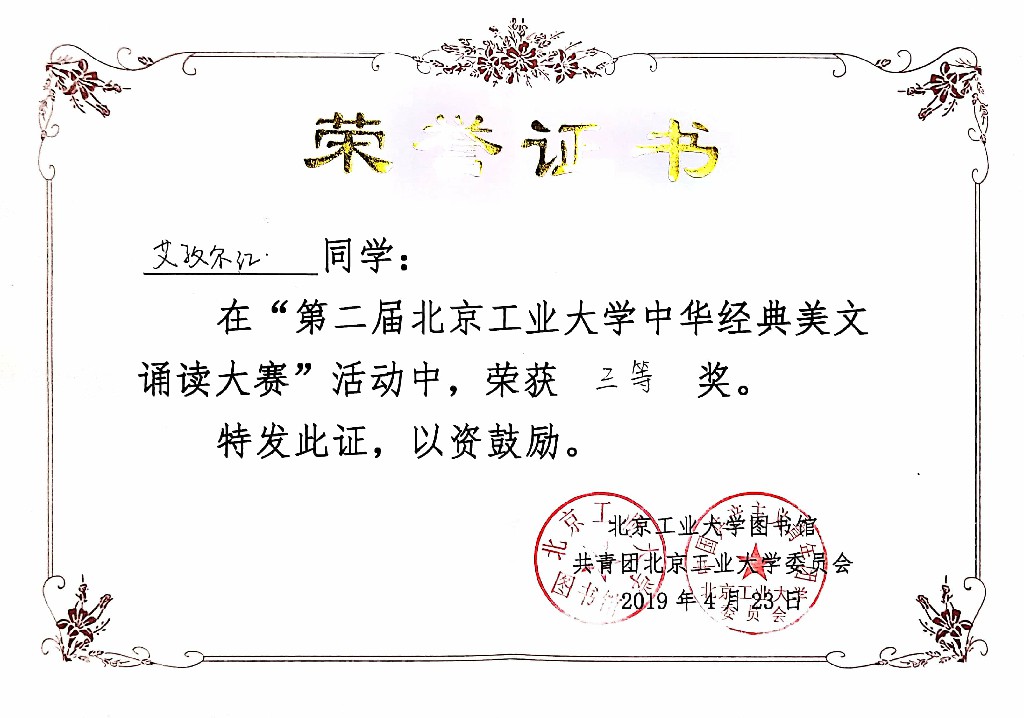 荣誉证书
艾孜尔江 同学：
在“第二届北京工业大学中华经典美文
诵读大赛”活动中，荣获 三等 奖。
特发此证，以资鼓励。
北京工业大学图书馆
共青团北京工业大学委员会
2019年4月23日
北京工业大学
图书馆
中国共产主义青年团
北京工业大学
委员会